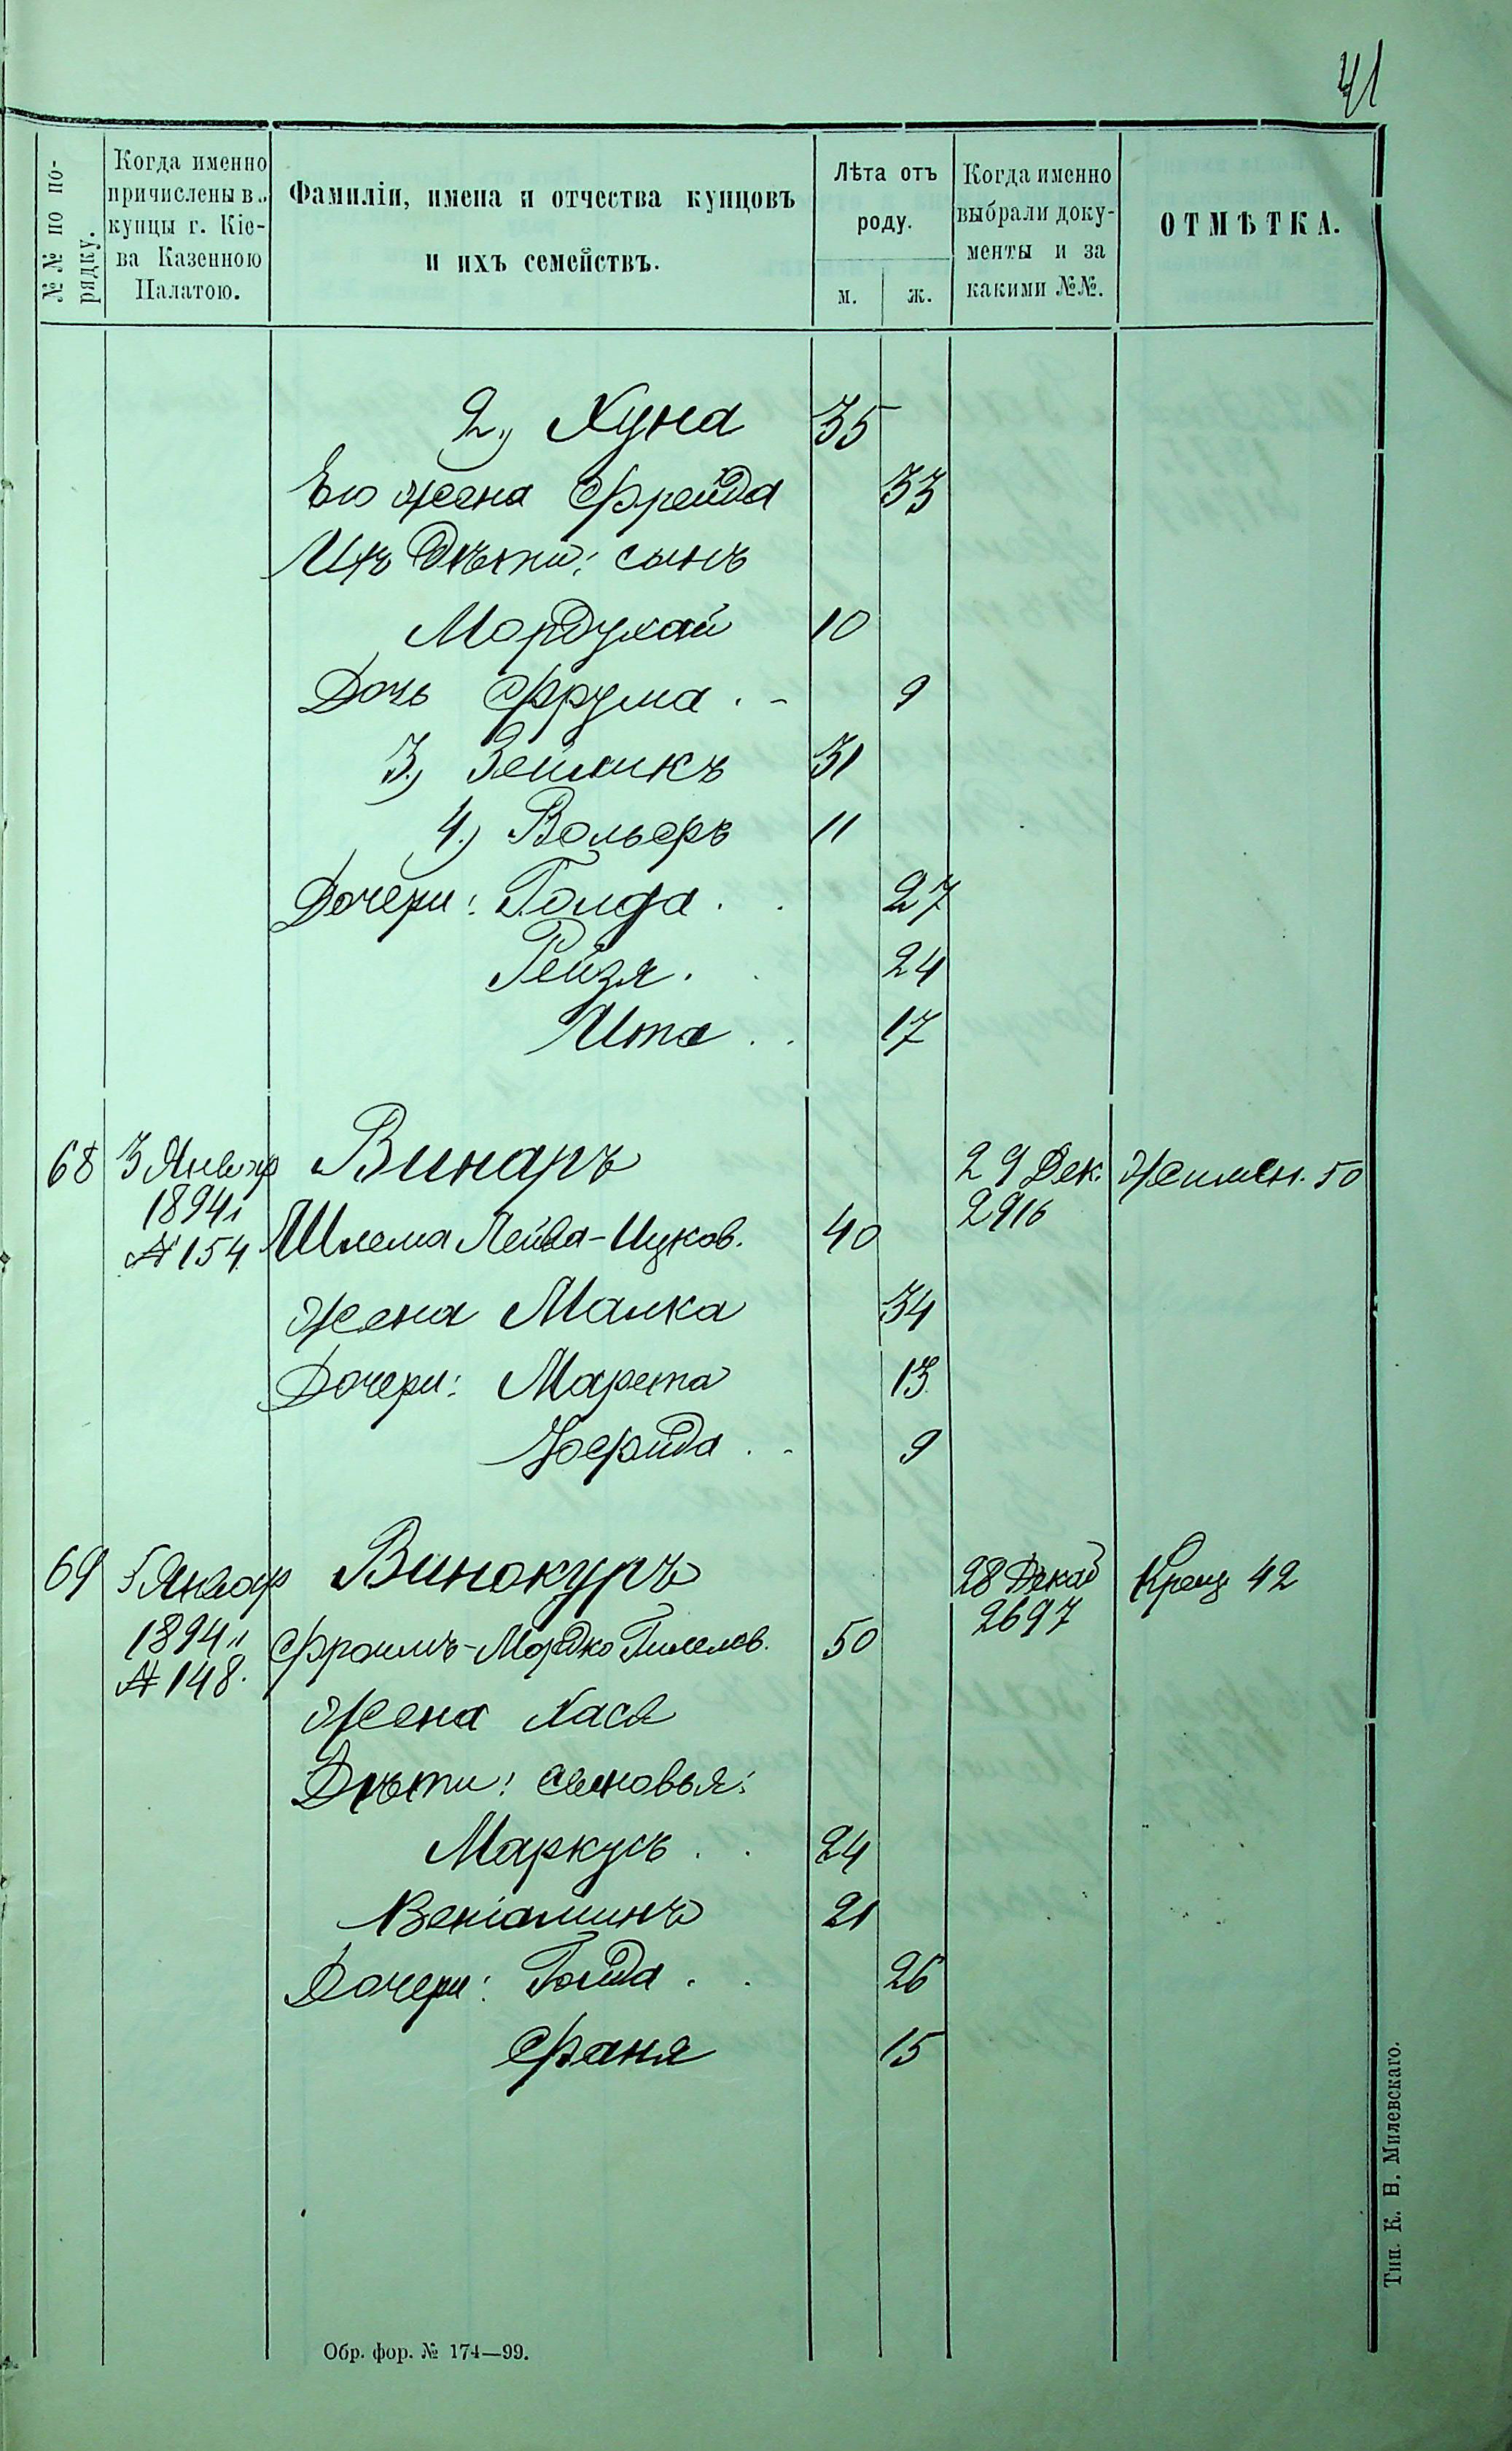 41
№№ по по-
рядку.
Когда именно
причислены въ
купцы г. Кіе-
ва Казенною
Палатою.
Фамиліи, имена и отчества купцовъ
и ихъ семействъ.
Лѣта отъ
роду.
м. ж.
Когда именно
выбрали доку-
менты и за
какими №№.
ОТМѢТКА.
2.) Хуна 35
Его жена Фрейда 33
Ихъ Дѣти: сынъ
Мордухай 10
Дочь Фрума . - 9
3.) Зейликъ 31
4.) Вольфъ 11
Дочери: Голда . . 27
Рейзя . . 24
Ита . . 17
68 3 Январ Винаръ 29 Дек.
1894 2916
№ 154 Шлема Лейва-Ицков. 40
Жена Малка 34
Дочери: Марета 13
. - 9
69 5 Январ Винокуръ 28 Декаб Крещ 42
1894 Фроимъ-Мордко 50 2697
№ 148.
Жена Хася
Дѣти: сыновья:
Маркусъ . . 24
Веніаминъ 21
Дочери: Голда . . 26
Фаня 15
Обр. фор. № 174—99.
Тип. К. Н. Милевскаго.